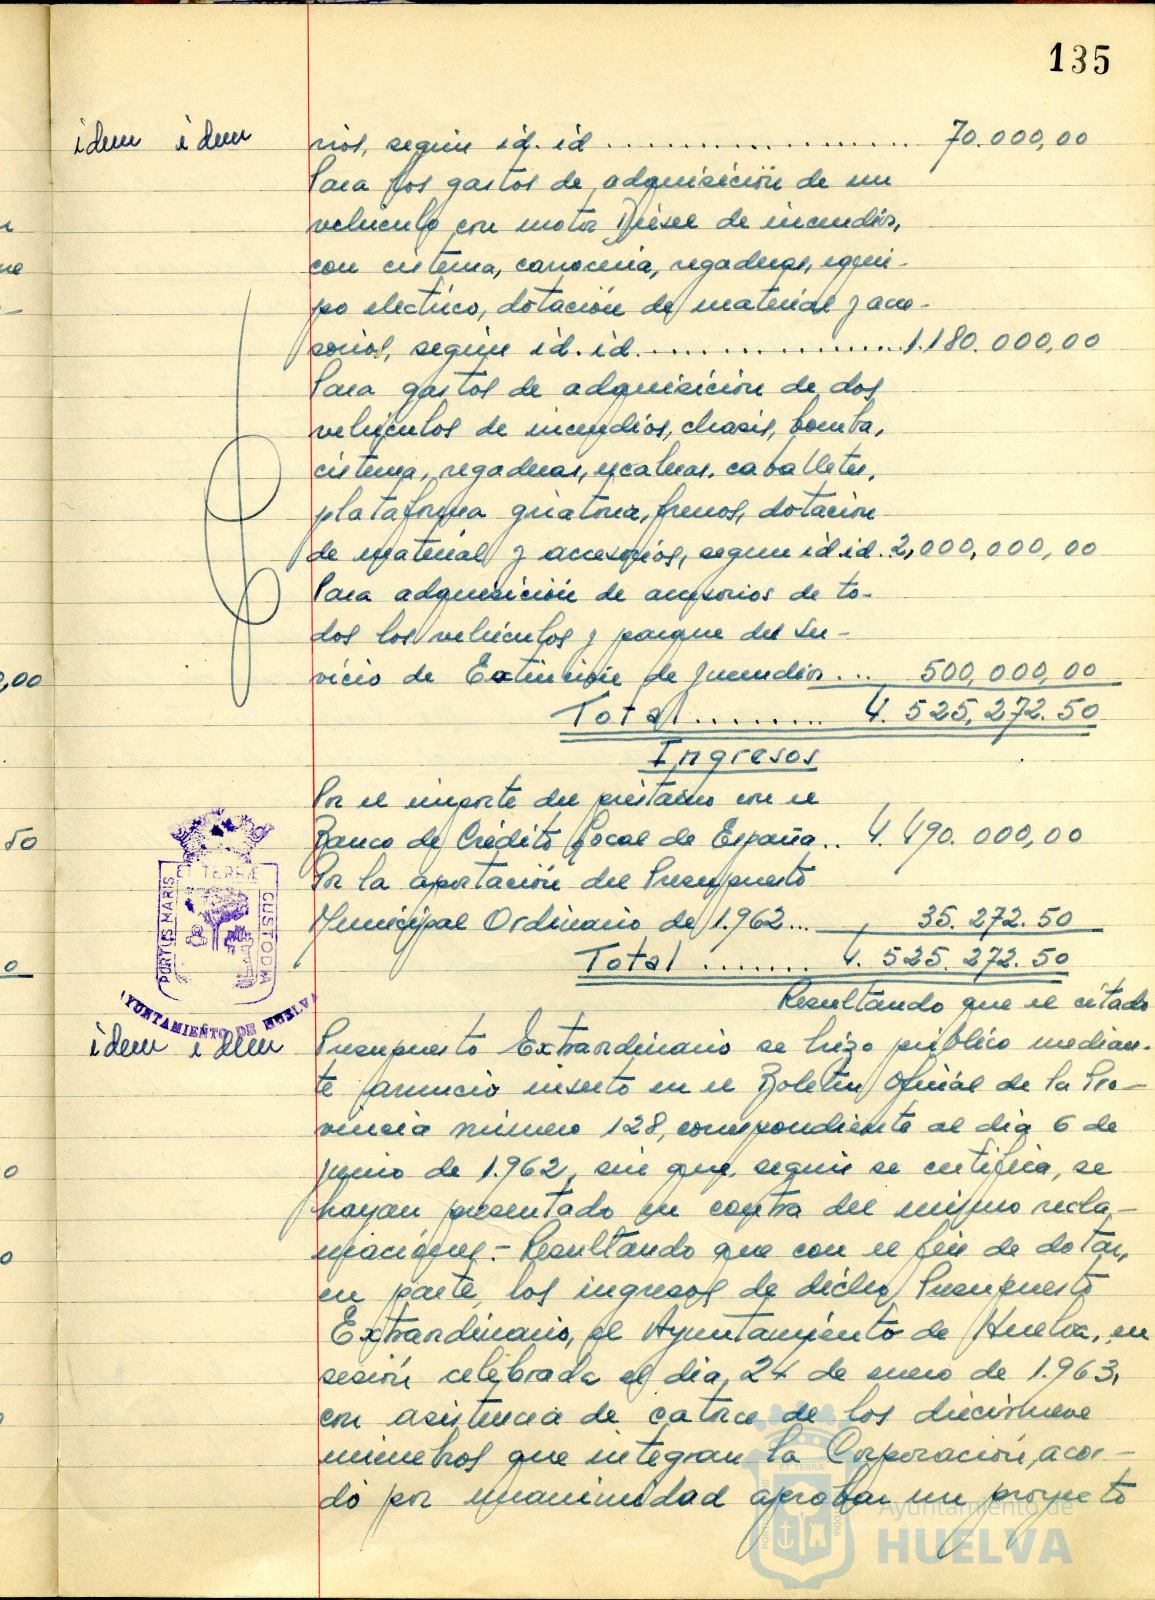 135
idem idem
rios, según id. id ................. 70.000,00
Para los gastos de adquisición de un
vehículo con motor Diésel de incendios,
con cisterna, carrocería, regaderas, equi-
po eléctrico, dotación de material y acce-
sorios, según id. id. ................. 1.180.000,00
Para gastos de adquisición de dos
vehículos de incendios, chasis, bomba,
cisterna, regaderas, escaleras, caballetes,
plataforma giratoria, frenos, dotación
de material y accesorios, según id id. 2,000,000,00
Para adquisición de accesorios de to-
dos los vehículos y parque del Ser-
vicio de Extinción de Incendios ... 500,000,00
Total ........ 4.525,272.50
Ingresos
Por el importe del préstamo con el
Banco de Crédito Local de España .. 4.490.000,00
Por la aportación del Presupuesto
Municipal Ordinario de 1.962 ... 35.272.50
Total ....... 4.525.272.50
PORTUS MARIS ET TERRÆ CUSTODIA
AYUNTAMIENTO DE HUELVA
Resultando que el citado
idem idem
Presupuesto Extraordinario se hizo público median-
te anuncio inserto en el Boletín Oficial de la Pro-
vincia número 128, correspondiente al día 6 de
junio de 1.962, sin que, según se certifica, se
hayan presentado en contra del mismo recla-
maciones.- Resultando que con el fin de dotar,
en parte, los ingresos de dicho Presupuesto
Extraordinario, el Ayuntamiento de Huelva, en
sesión celebrada el día 24 de enero de 1.963,
con asistencia de catorce de los diecinueve
miembros que integran la Corporación, acor-
dó por unanimidad aprobar un proyecto
Ayuntamiento de
HUELVA